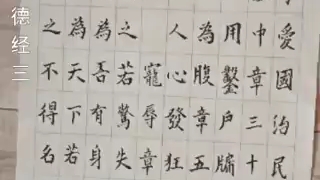 愛國治民
中章三十
用鑿戶牖
為腹章五
人心發狂
寵辱章
之若驚失
為吾有身
為天下若
之不得名
德经三